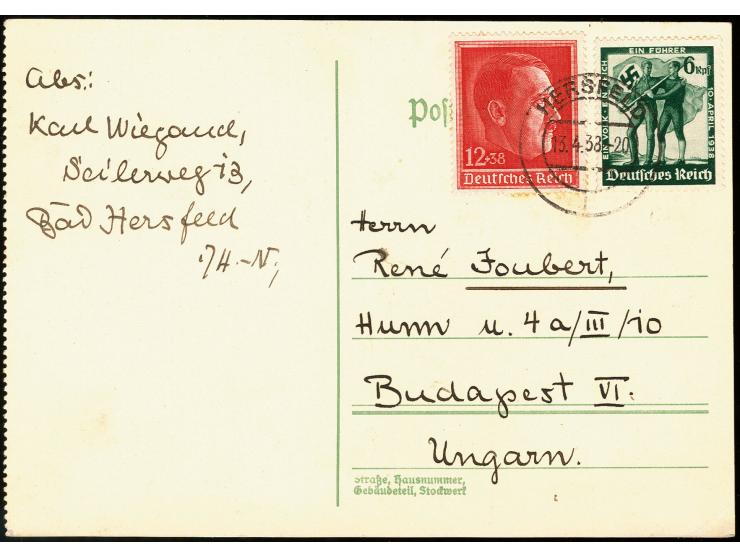 Abs.:
Karl Wiegand,
Seilerweg 13,
Bad Hersfeld
/H.-N.,
Post
12+38
Deutsches Reich
EIN FÜHRER
EIN VOLK EIN REICH
10. APRIL 1938
6 Rpf
Deutsches Reich
HERSFELD
13.4.38.-20
Herrn
René Joubert,
Hunn u. 4a/III/10
Budapest VI.
Ungarn.
Straße, Hausnummer,
Gebäudeteil, Stockwerk